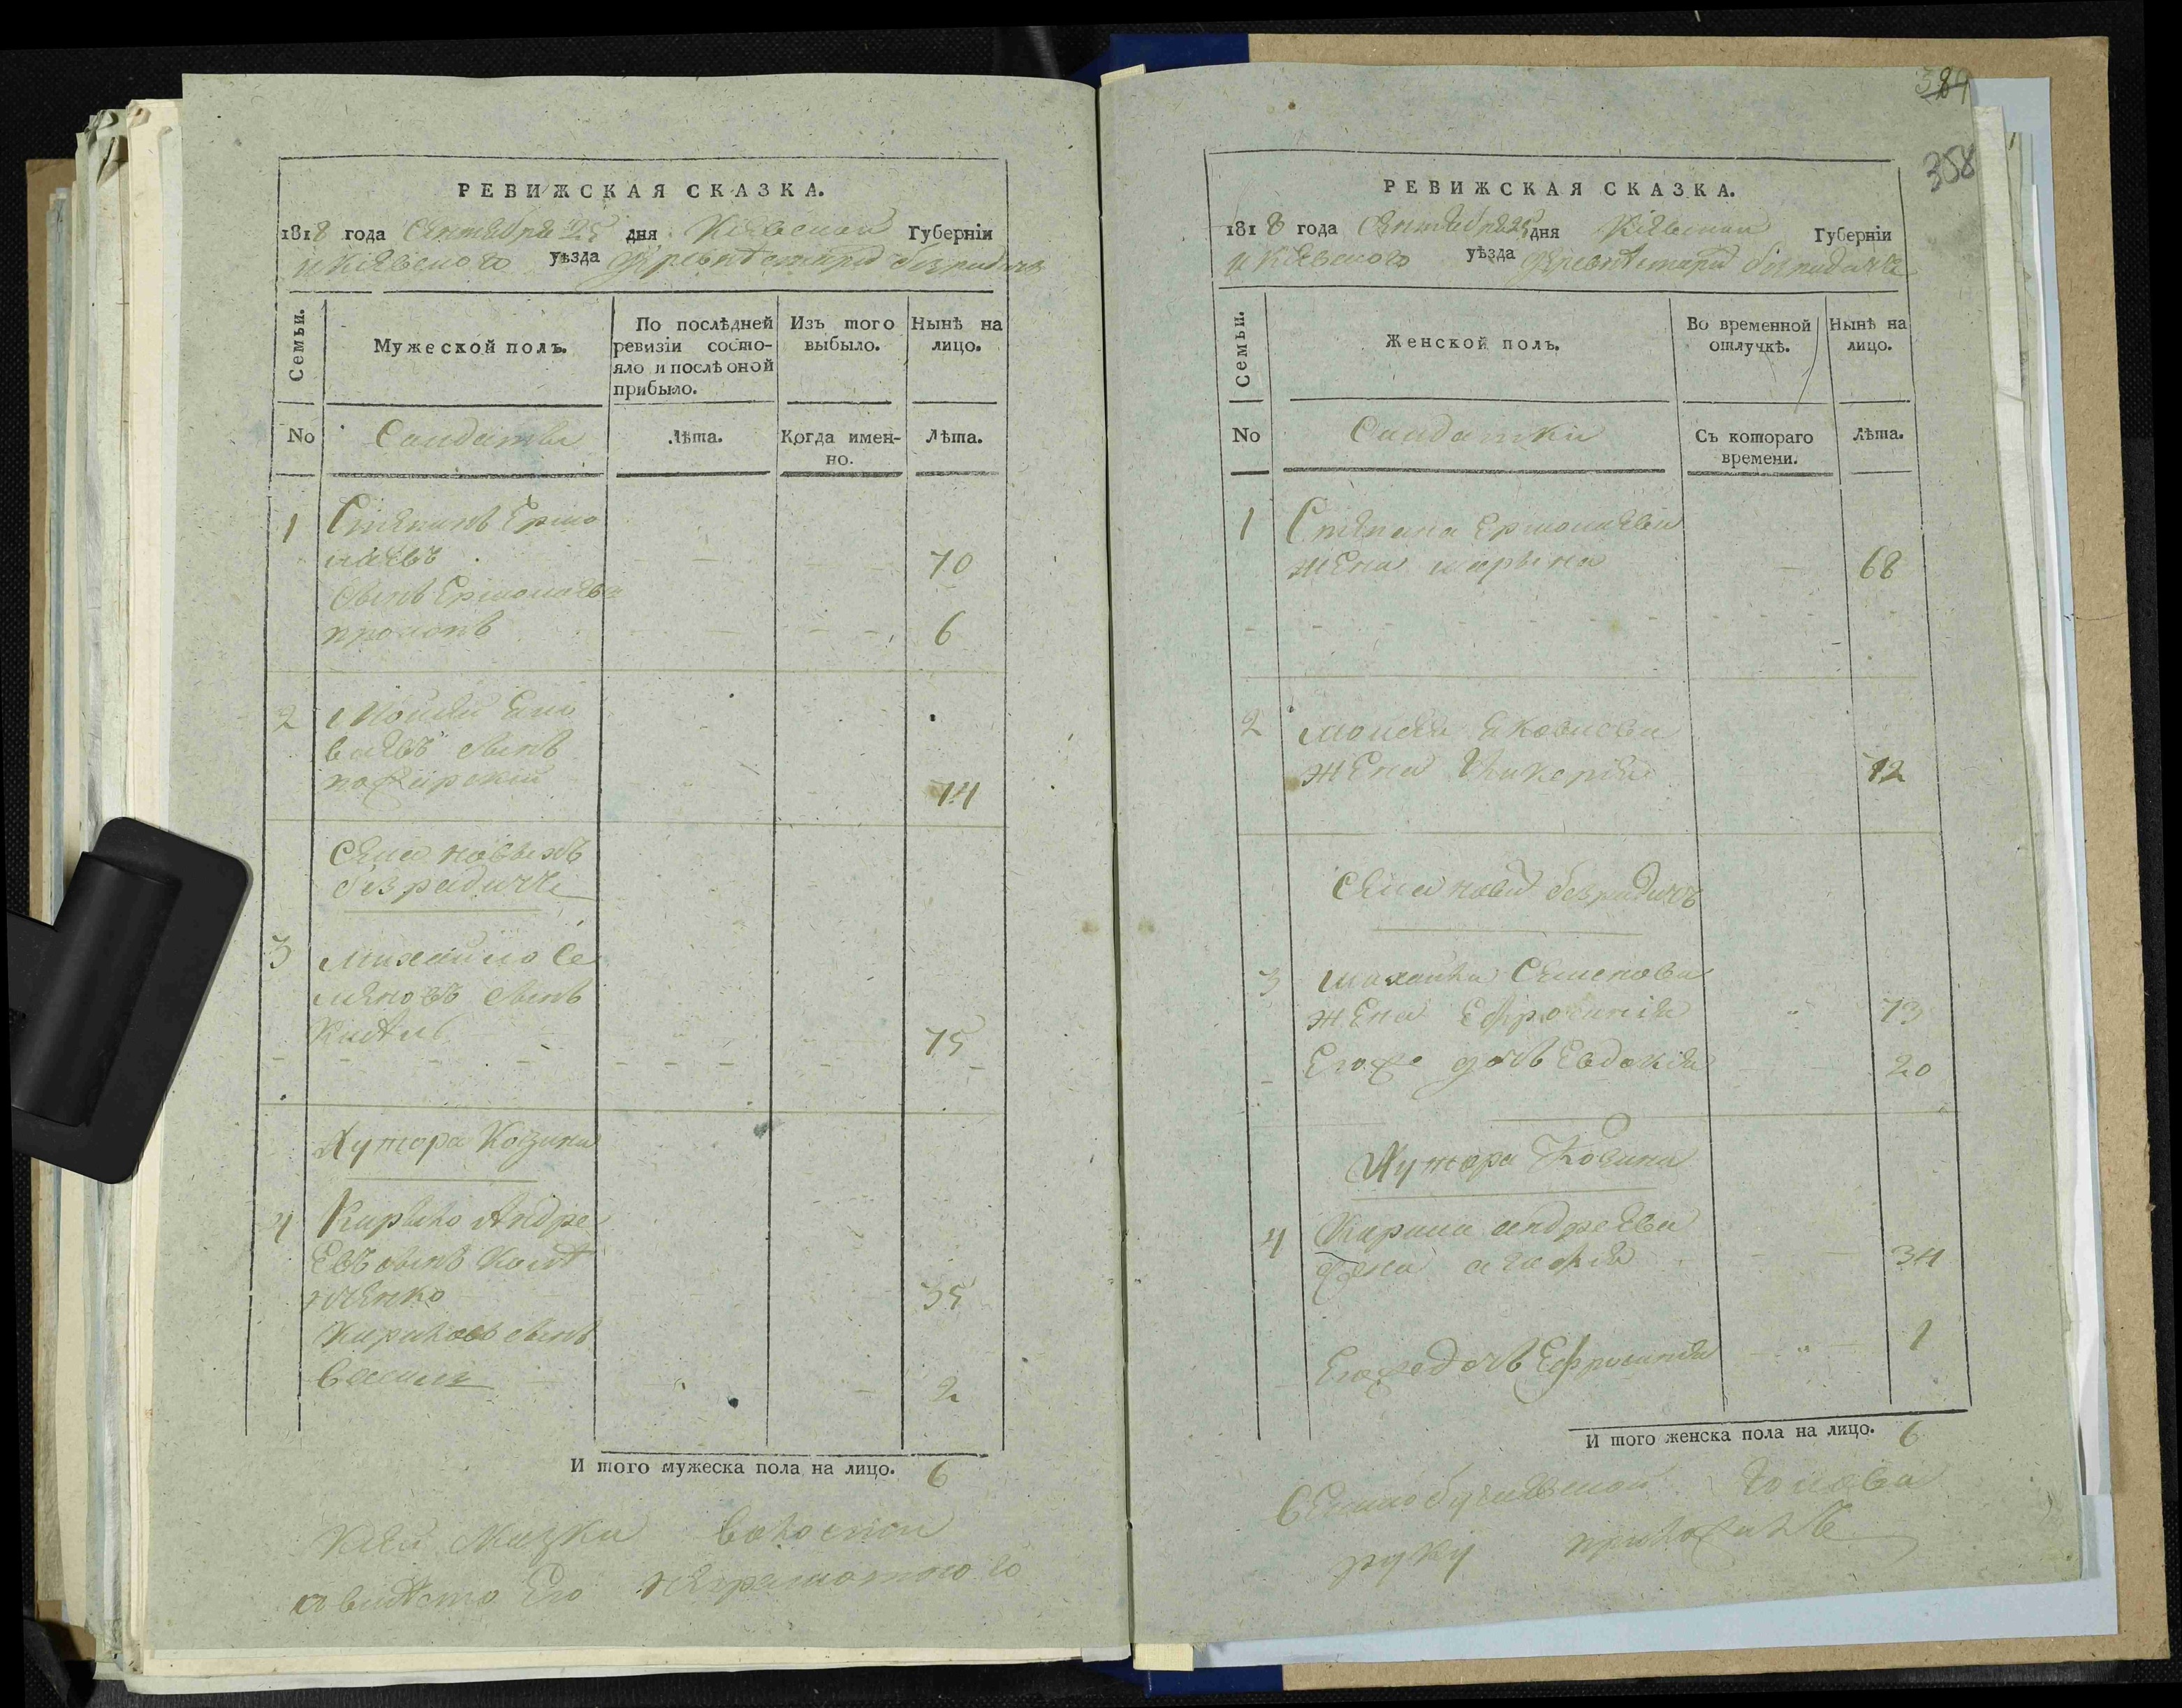 РЕВИЖСКАЯ СКАЗКА.
1818 года Сентября 25 дня Кіевской Губерніи
и Кіевского уѣзда деревнѣ старо безрадичъ
Семьи.
Мужеской полъ.
По послѣдней ревизіи состояло и послѣ оной прибыло.
Изъ того выбыло.
Нынѣ на лицо.
No
Салдаты
Лѣта.
Когда именно.
Лѣта.
1 Степанъ Ермо
лаевъ 70
сынъ Ермолаева
6
2 Моисей Яко
влевъ сынъ
74
Села новыхъ
безрадичъ
3 Михайло Се
меновъ сынъ
75
Хутора Козина
4 Кирило Андре
евъ сынъ
35
Кириловъ сынъ
Василь 2
И того мужеска пола на лицо. 6
волости
его неграмотного
384
358
РЕВИЖСКАЯ СКАЗКА.
1818 года Сентября 25 дня Кіевской Губерніи
и Кіевского уѣзда деревнѣ старо безрадичъ
Семьи.
Женской полъ.
Во временной отлучкѣ.
Нынѣ на лицо.
No
Салдатки
Съ котораго времени.
Лѣта.
1 Степана Ермолаева
жена марына 68
2 Моисея Яковлева
жена 72
Села новы безрадичъ
3 михайла Семенова
жена Ефросинія 73
Его же дочь Евдокія 20
Хутора Козина
4 Кирила андреева
жена агафія 34
Его же дочь Ефросинія 1
И того женска пола на лицо. 6
голова
руку приложилъ